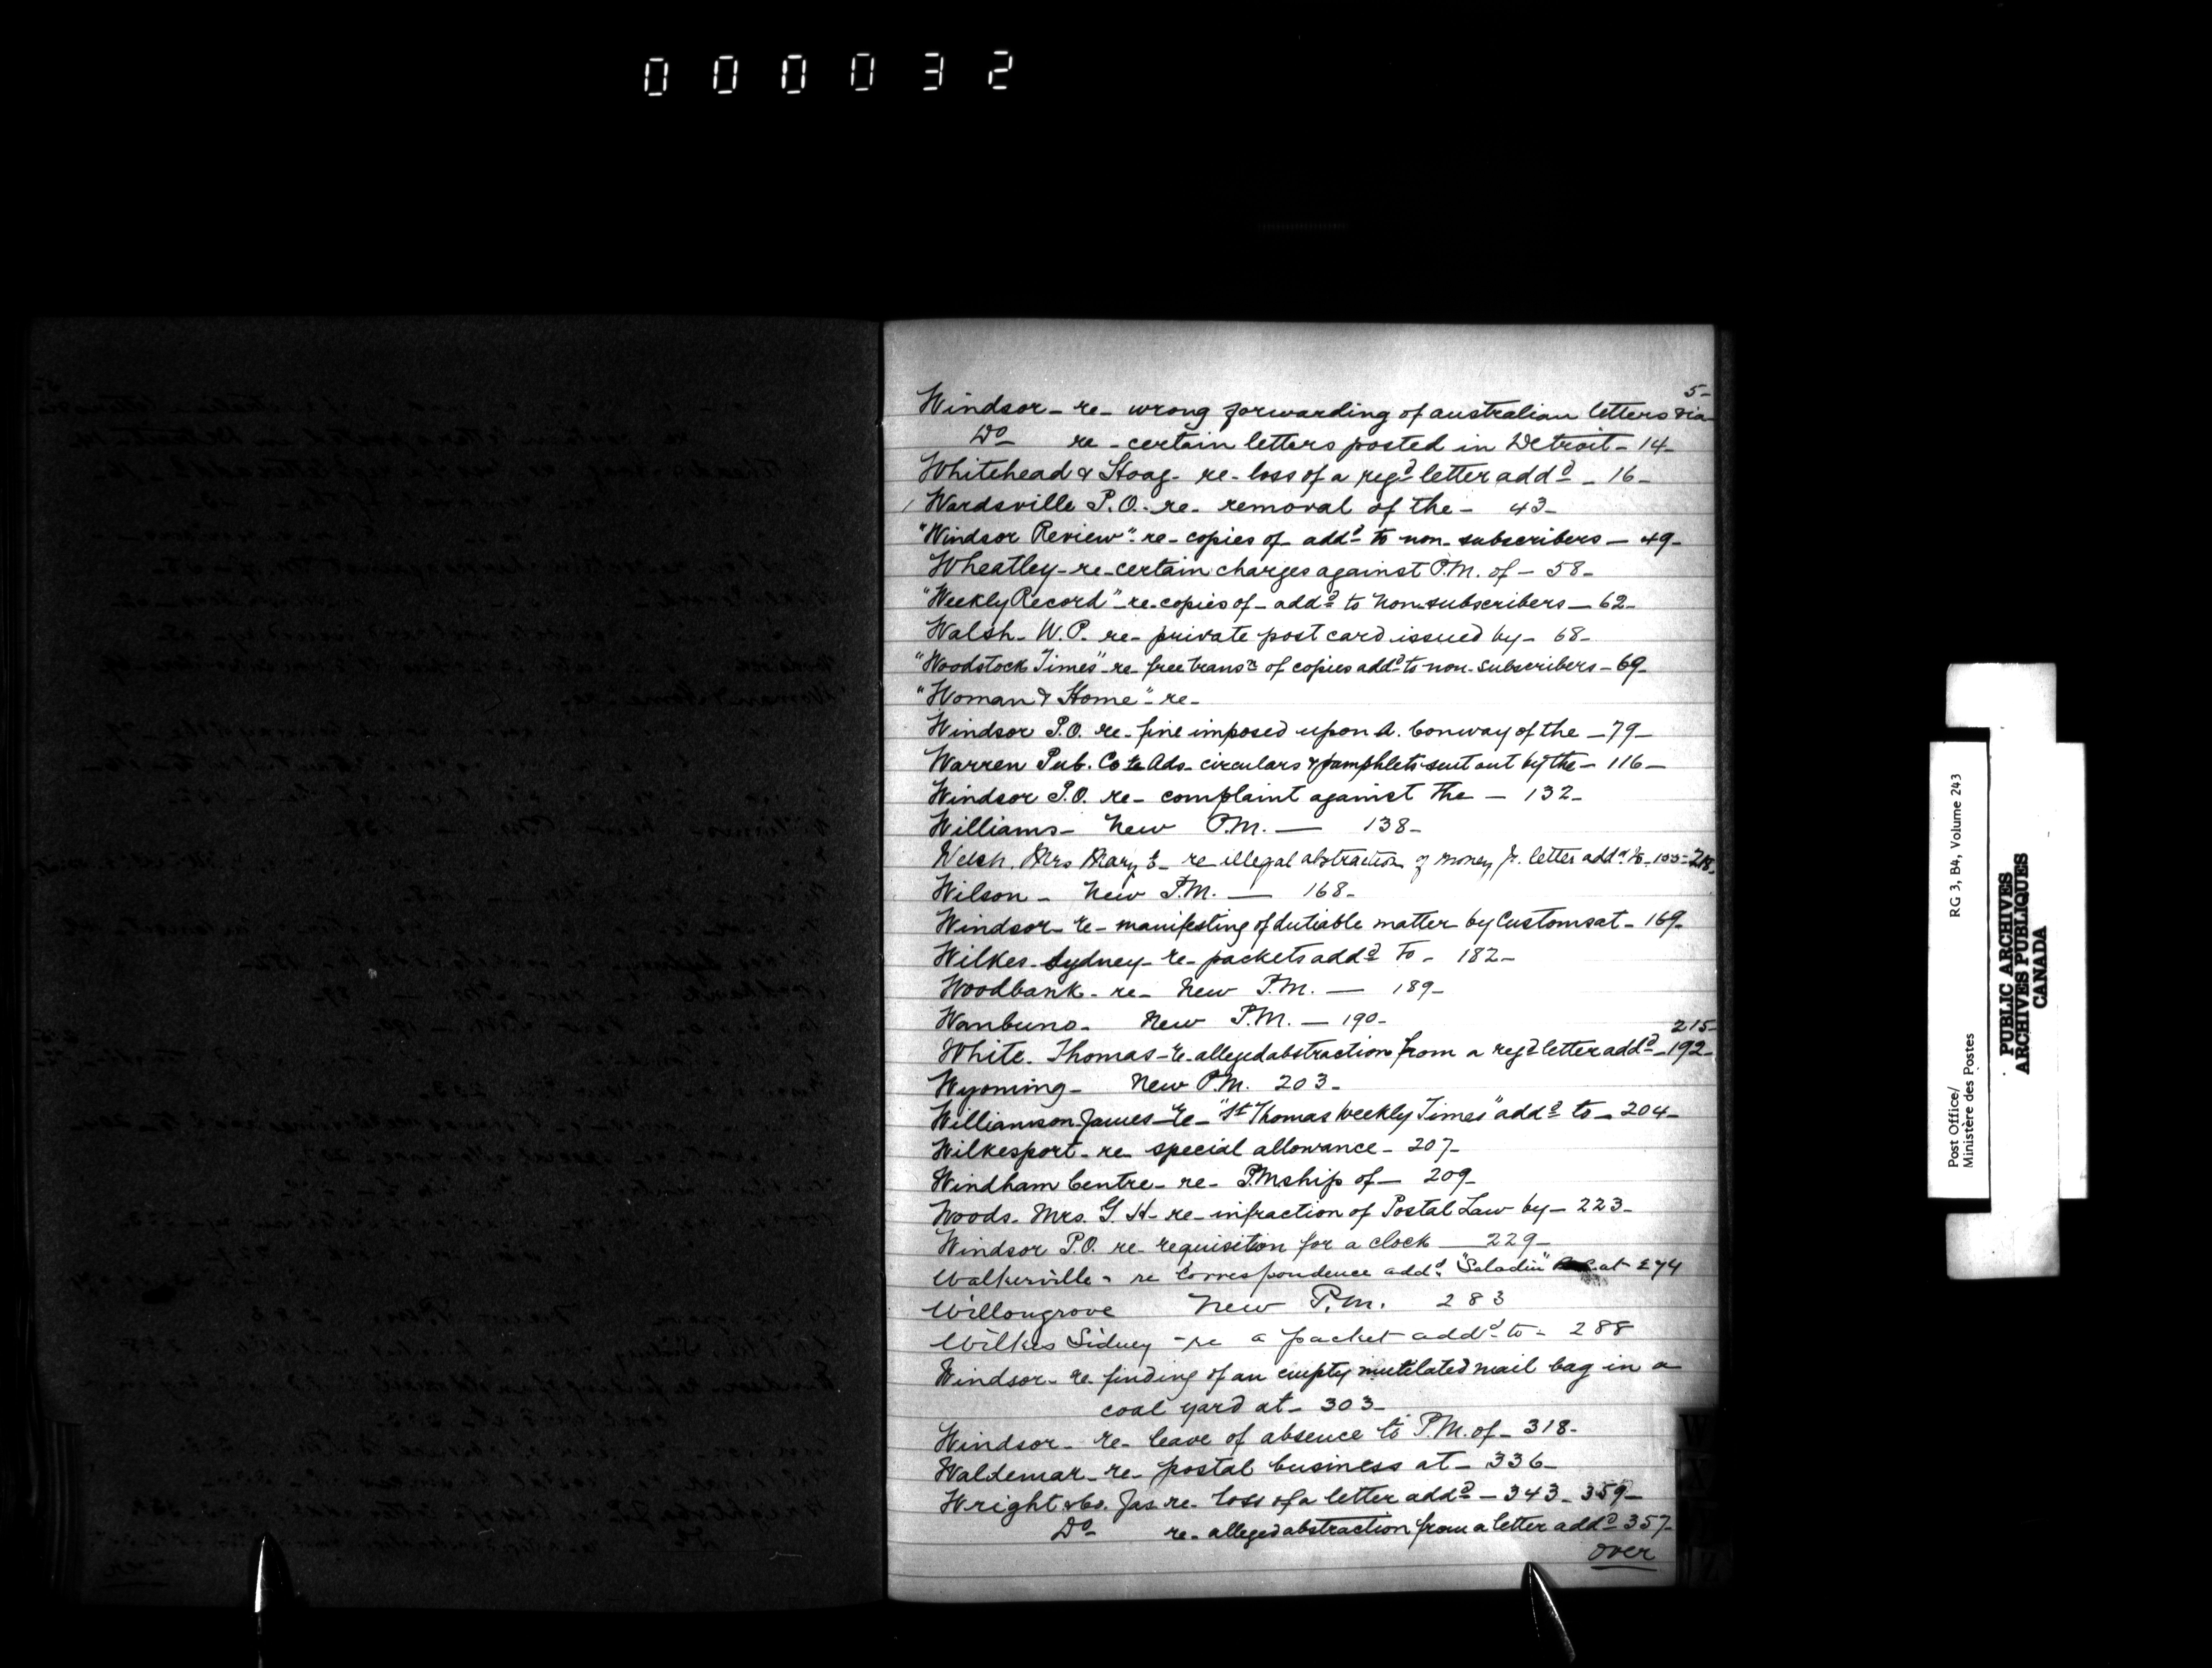 000032
5-
Windsor - re - wrong forwarding of australian letters via
Do re - certain letters posted in Detroit - 14 -
Whitehead & Hoag - re - loss of a regd letter addd - 16 -
Wardsville P.O. - re - removal of the - 43 -
"Windsor Review" - re - copies of - addd to non-subscribers - 49 -
Wheatley - re - certain charges against P.M. of - 58 -
"Weekly Record" - re - copies of - addd to non-subscribers - 62 -
Walsh - W.P. re - private post card issued by - 68 -
"Woodstock Times" - re - free transn of copies addd to non-subscribers - 69 -
"Woman & Home" - re -
Windsor P.O. re - fine imposed upon A. Conway of the - 79 -
Warren Pub. Co re Ads - circulars & pamphlets sent out by the - 116 -
Windsor P.O. re - complaint against the - 132 -
Williams - New P.M. - 138 -
Welsh, Mrs Mary E - re illegal abstraction of money fr. letter addd to - 155 - 218 -
Wilson - New P.M. - 168 -
Windsor - re - manifesting of dutiable matter by Customs at - 169 -
Wilkes - Sydney - re - packets addd to - 182 -
Woodbank - re - New P.M. - 189 -
Wanbuno - New P.M. - 190 -
215 -
White - Thomas - re - alleged abstraction from a regd letter addd - 192 -
Wyoming - New P.M. 203 -
Williamson James - re - "St Thomas Weekly Times" addd to - 204 -
Wilkesport - re - special allowance - 207 -
Windham Centre - re - P.Mship of - 209 -
Woods - Mrs. G. H - re - infraction of Postal Law by - 223 -
Windsor P.O. re - requisition for a clock - 229 -
Walkerville - re Correspondence addd "Saladin" at 274
Willowgrove New P.M. 283
Wilkes Sidney - re a packet addd to - 288
Windsor - re - finding of an empty mutilated mail bag in a
coal yard at - 303 -
Windsor - re - leave of absence to P.M. of - 318 -
Waldemar - re - postal business at - 336 -
Wright & Co. Jas re - loss of a letter addd - 343 - 359 -
Do re - alleged abstraction from a letter addd 357 -
over
W
Z
Post Office/
Ministère des Postes
RG 3, B4, Volume 243
PUBLIC ARCHIVES
ARCHIVES PUBLIQUES
CANADA